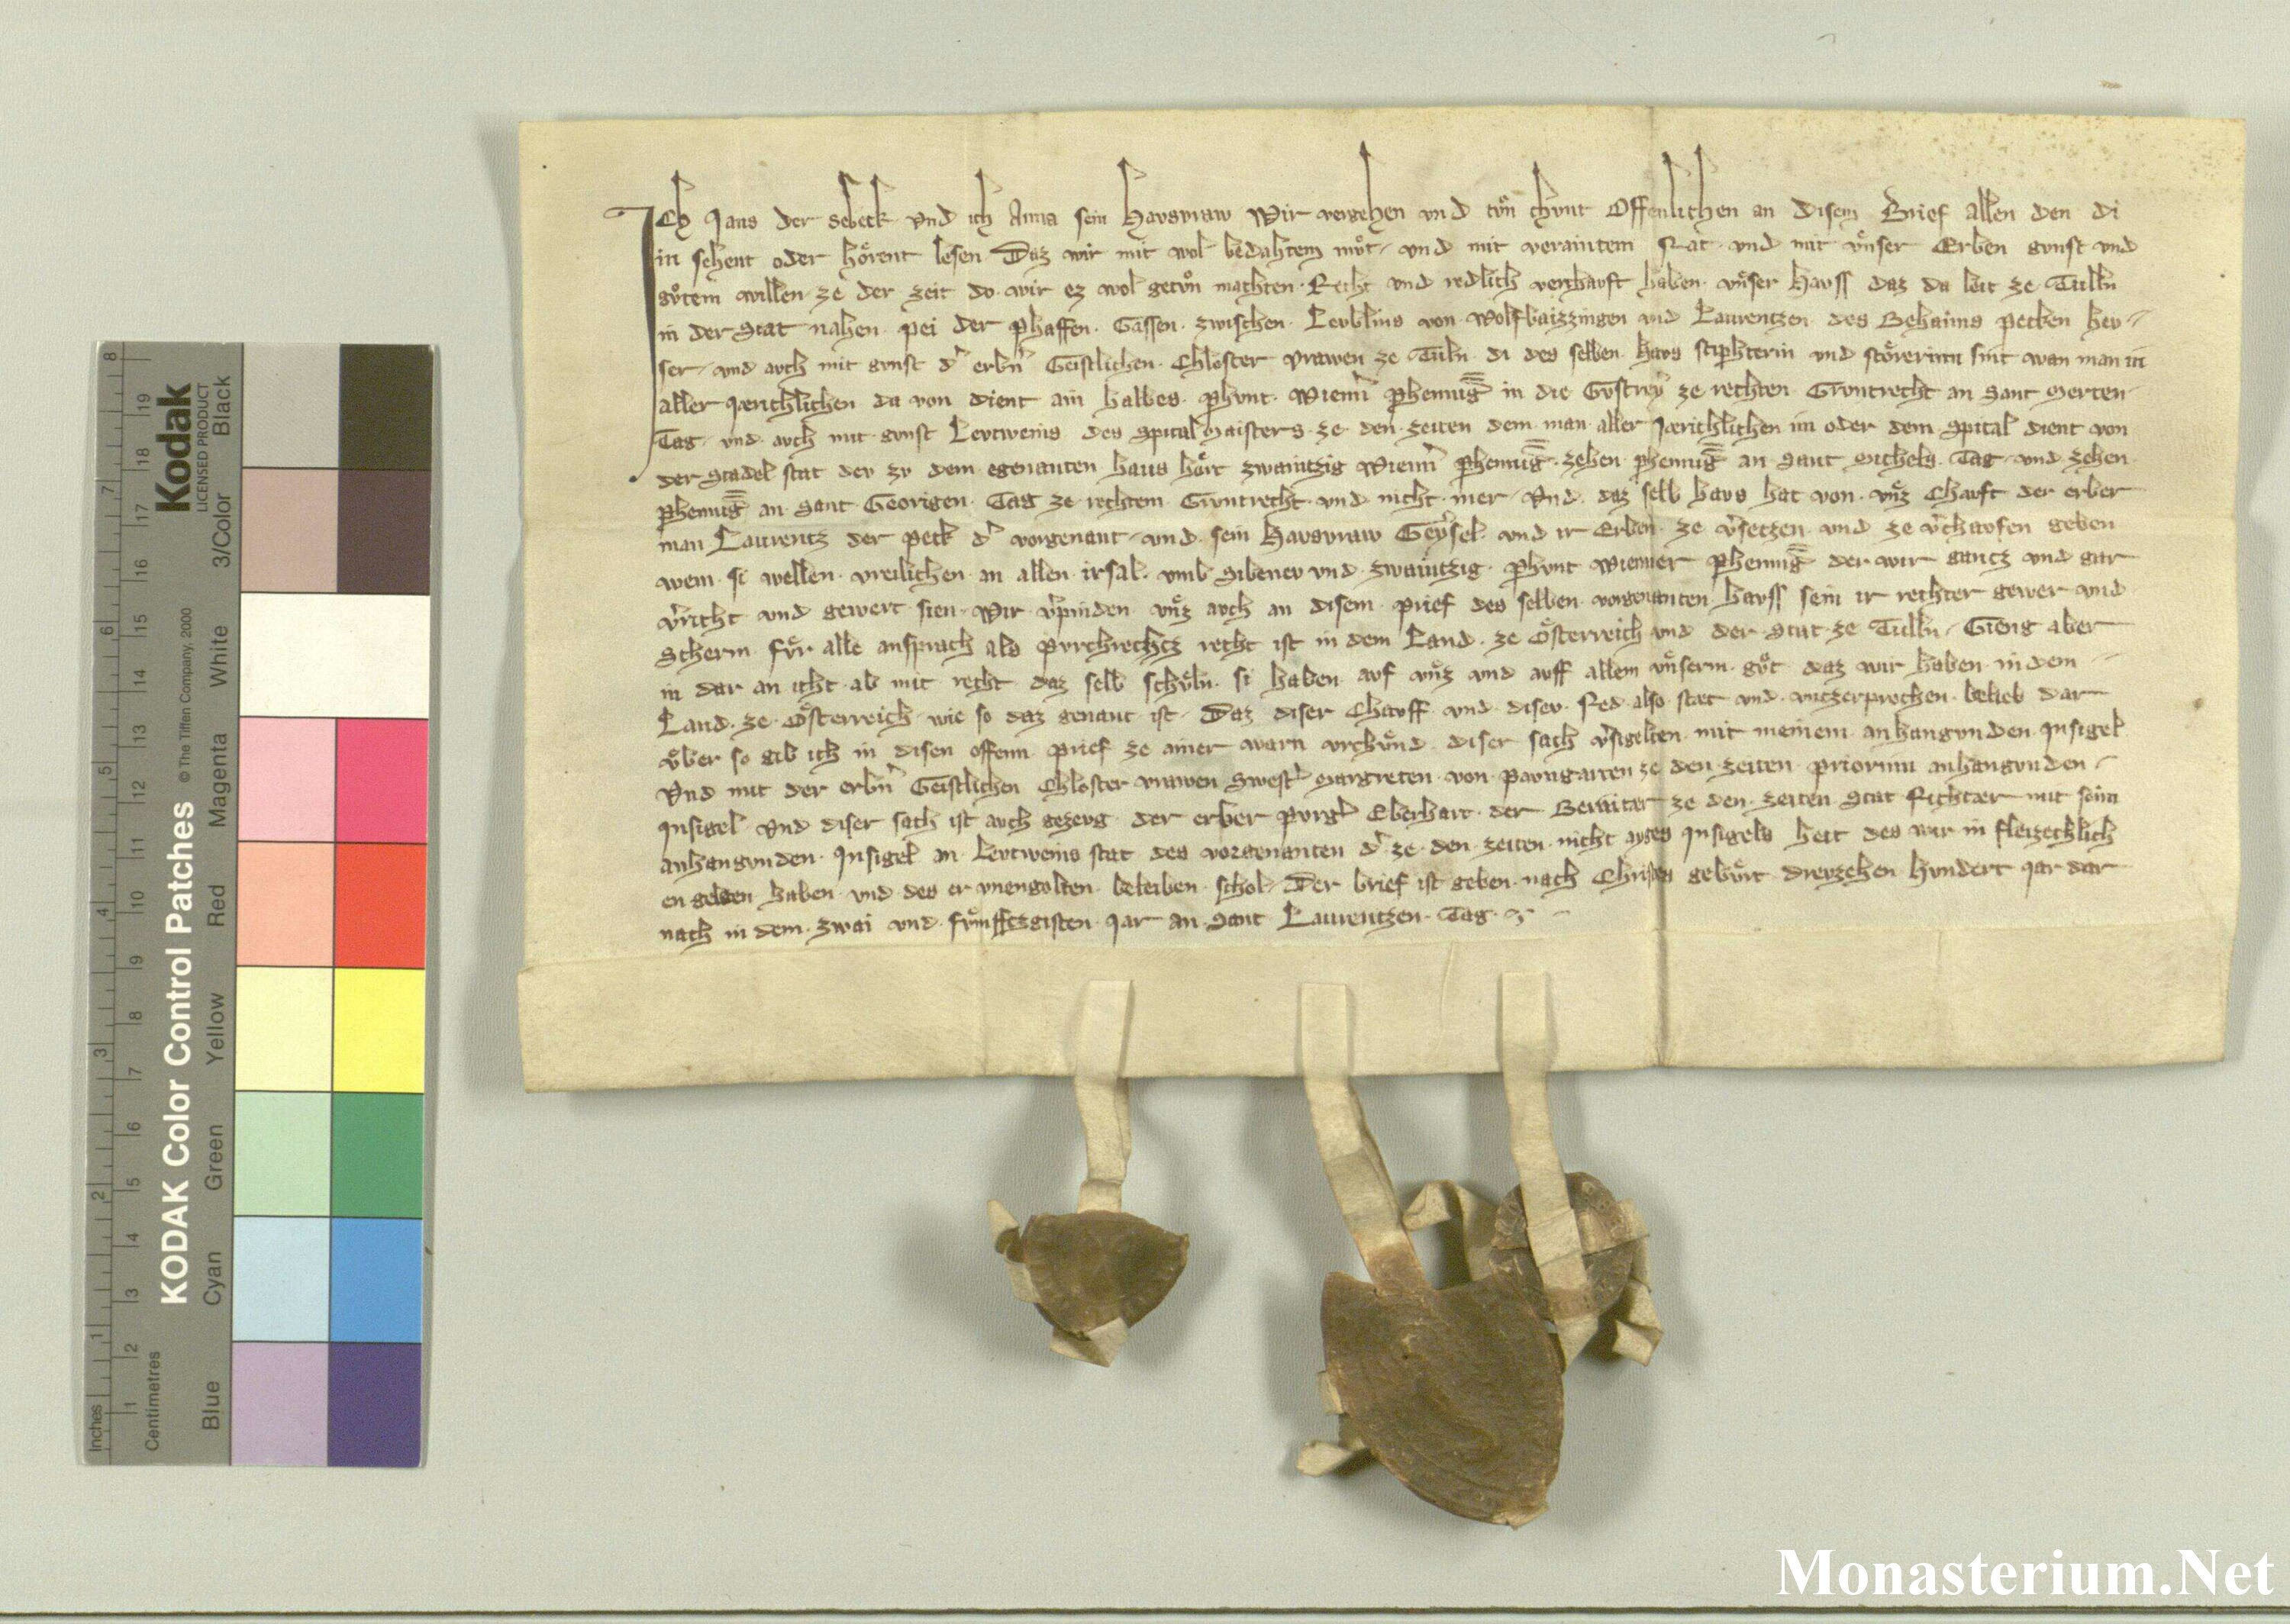 Ich Jans der Sebeck vnd ich Anna sein Havsvraw Wir veriehen vnd tvͦn chvnt Offenlichen an disem Brief allen den di
in sehent oder hoͤrent lesen Daz wir mit wol bedahtem mvͦt vnd mit veraintem Rat vnd mit vnͤser Erben gvnst vnd
gvͦtem willen ze der zeit do wir ez wol getvͦn machten Recht vnd redlich verchavft haben vnͤser Havss daz da leit ze Tulln
in der Stat nahen pei der Phaffen Gassen zwischen Levblins von Wolfpaizzingen vnd Laurentzen des Behaims pecken hev-
ser vnd avch mit gvnst d' erbn' Geistlichen Chloster vrawen ze Tuln di des selben havs stiphterin vnd stoͤrerinn sint wan man in
aller Jærichlichen da von dient ain halbes phvnt Wienn' phennig in die Gvstrey ze rechten Grvntrecht an Sant Merten
Tag vnd avch mit gvnst Levtweins des Spital Maisters ze den zeiten dem man aller Jærichlichen im oder dem Spital dient von
der Stadel stat dev zv dem egenanten haus hoͤrt zwaintzig Wienn' phennig zehen phennig an Sant Michels Tag vnd zehen
phennig an Sant Georigen Tag ze rechtem Grvntrecht vnd nicht mer Vnd daz selb havs hat von vnͤz chavft der erber
man Laurentz der peck d' vorgenant vnd sein Havsvraw Geysel vnd ir Erben ze v'setzen vnd ze v'chavfen geben
wem si wellen vreilichen an allen irsal vmb Sibenev vnd zwaintzig phvnt Wienner phennig der wir gantz vnd gar
v'richt vnd gewert sien Wir v'pinden vnͤz avch an disem prief des selben vorgenanten havss sein ir rechter gewer vnd
Scherm fvͤr alle ansprach als pvrchrechtz recht ist in dem Land ze Oͤsterreich vnd der Stat ze Tulln Gieng aber
in dar an icht ab mit recht daz selb schvͤln si haben avf vnͤz vnd avff allem vnͤserm gvͦt daz wir haben in dem
Land ze Oͤsterreich wie so daz genant ist Daz diser Chavff vnd disev Red also stæt vnd vntzerprochen beleib dar
vͤber so gib ich in disen offenn prief ze ainer warn vrchvͤnd diser sach v'sigelten mit meinem anhangvnden Insigel
Vnd mit der erbn' Geistlichen Chloster vrawen Swest' Margreten von Pavngarten ze den zeiten priorinn anhangvnden
Insigel Vnd diser sach ist avch gezevg der erber pvrg' Eberhart der Beraiter ze den zeiten Stat Richtær mit seim
anhangvnden Insigel an Levtweins stat des vorgenanten d' ze den zeiten nicht ayges Insigels het des wir in fleizechlich
en gebten haben vnd des er vnengolten beleiben schol Der brief ist geben nach Christes gebvͤrt drevzehen hvndert Jar dar
nach in dem zwai vnd fvͤnfftzgisten Jar an Sant Laurentzen Tag
Kodak
LICENSED PRODUCT
KODAK Color Control Patches
© The Tiffen Company, 2000
Inches
Centimetres
Blue
Cyan
Green
Yellow
Red
Magenta
White
3/Color
Black
1 2 3 4 5 6 7 8
1 2 3 4 5 6 7 8 9 10 11 12 13 14 15 16 17 18 19
Monasterium.Net